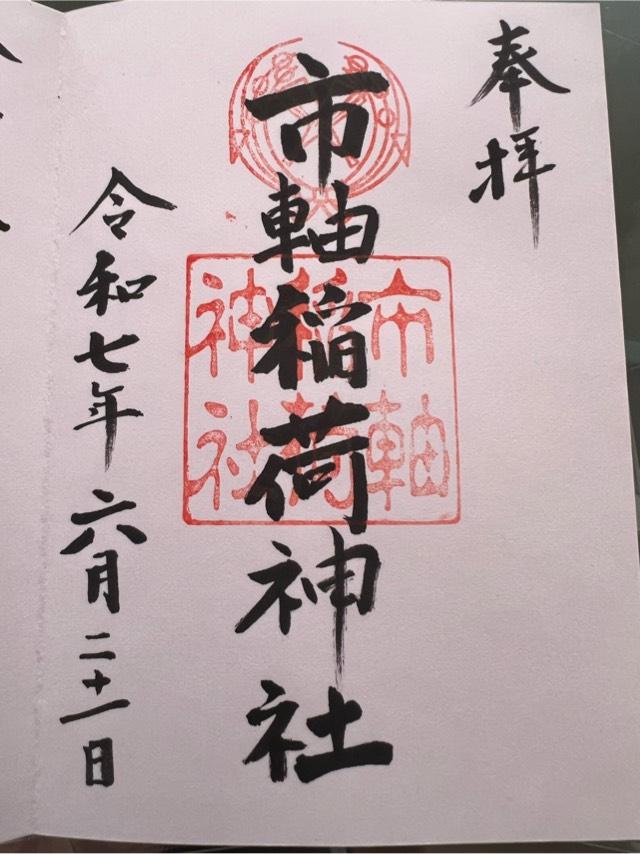 奉拝
市軸稲荷神社
市軸
稲荷
神社
令和七年六月二十一日